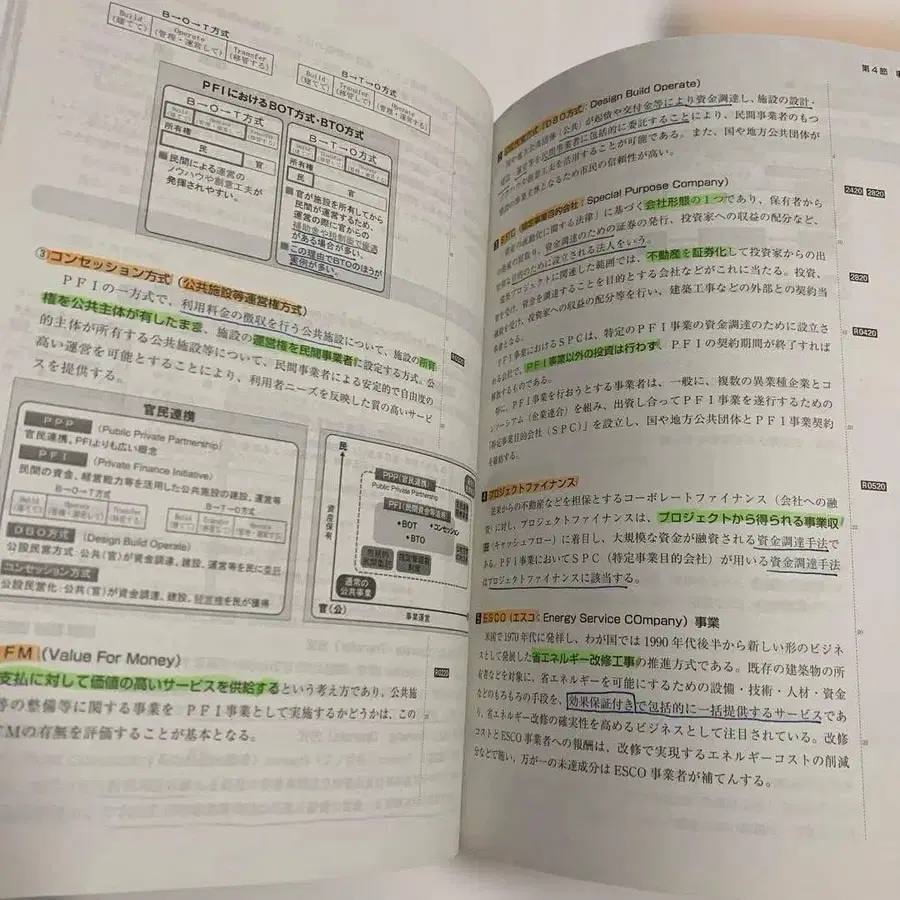 B→O→T方式
Build
(建てて)
Operate
(管理・運営して)
Transfer
(移管する)
B→T→O方式
Build
(建てて)
Transfer
(移管して)
Operate
(管理・運営する)
PFIにおけるBOT方式・BTO方式
B→O→T方式
所有権
民
官
■民間による運営の
ノウハウや創意工夫が
発揮されやすい。
B→T→O方式
所有権
民
官
■官が施設を所有してから
民間が運営するため、
運営の際に官からの
補助金や税制面で優遇
がある場合が多い。
■この理由でBTOのほうが
実例が多い。
③コンセッション方式（公共施設等運営権方式）
PFIの一方式で、利用料金の徴収を行う公共施設について、施設の所有
権を公共主体が有したまま、施設の運営権を民間事業者に設定する方式。公
的主体が所有する公共施設等について、民間事業者による安定的で自由度の
高い運営を可能とすることにより、利用者ニーズを反映した質の高いサービ
スを提供する。
官民連携
PPP (Public Private Partnership)
官民連携、PFIよりも広い概念
PFI (Private Finance Initiative)
民間の資金、経営能力等を活用した公共施設の建設、運営等
B→O→T方式
B→T→O方式
DBO方式 (Design Build Operate)
公設民営方式：公共(官)が資金調達、建設、運営等を民に委託
コンセッション方式
公設民営化：公共(官)が資金調達、建設、
民
資産保有
官(公)
事業運営
PPP(官民連携)
Public Private Partnership
PFI(民間資金等活用)
•BOT
•コンセッション
•BTO
通常の
公共事業
FM (Value For Money)
支払に対して価値の高いサービスを供給するという考え方であり、公共施
等の整備等に関する事業を PFI事業として実施するかどうかは、この
FMの有無を評価することが基本となる。
第4節
(DBO方式：Design Build Operate)
(公共)が起債や交付金等により資金調達し、施設の設計・
運営等を民間事業者に包括的に委託することにより、民間事業者のもつ
ノウハウや創意工夫を活用することが可能である。また、国や地方公共団体が
施設の事業主体となるため市民の信頼性が高い。
2420 2820
SPC (特定事業目的会社：Special Purpose Company)
資産の流動化に関する法律」に基づく会社形態の1つであり、保有者から
資産の買取り、資金調達のための証券の発行、投資家への収益の配分など、
目的のために設立される法人をいう。
関連した範囲では、不動産を証券化して投資家からの出
資を受け、資金を調達することを目的とする会社などがこれに当たる。投資、
融資を受け、投資家への収益の配分等を行い、建築工事などの外部との契約当
事者となる。
2820
PFI事業におけるSPCは、特定のPFI事業の資金調達のために設立さ
れる会社で、PFI事業以外の投資は行わず、PFIの契約期間が終了すれば
解散するものである。
R0420
特に、PFI事業を行おうとする事業者は、一般に、複数の異業種企業とコ
ンソーシアム（企業連合）を組み、出資し合ってPFI事業を遂行するための
「特定事業目的会社（SPC）」を設立し、国や地方公共団体とPFI事業契約
を締結する。
4 プロジェクトファイナンス
R0520
従来からの不動産などを担保とするコーポレートファイナンス（会社への融
資）に対し、プロジェクトファイナンスは、プロジェクトから得られる事業収
益（キャッシュフロー）に着目し、大規模な資金が融資される資金調達手法で
ある。PFI事業においてSPC（特定事業目的会社）が用いる資金調達手法
はプロジェクトファイナンスに該当する。
5 ESCO（エスコ：Energy Service COmpany）事業
米国で1970年代に発祥し、わが国では1990年代後半から新しい形のビジネ
スとして発展した省エネルギー改修工事の推進方式である。既存の建築物の所
有者などを対象に、省エネルギーを可能にするための設備・技術・人材・資金
などのもろもろの手段を、効果保証付きで包括的に一括提供するサービスであ
り、省エネルギー改修の確実性を高めるビジネスとして注目されている。改修
コストとESCO事業者への報酬は、改修で実現するエネルギーコストの削減
分などで賄い、万が一の未達成分はESCO事業者が補てんする。